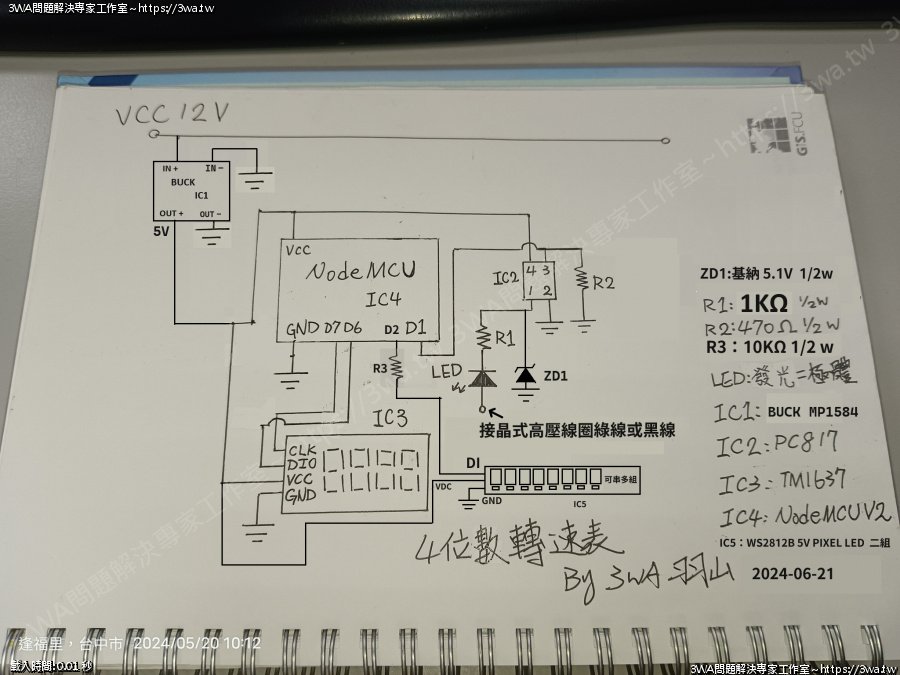 3WA問題解決專家工作室~https://3wa.tw
VCC 12V
GIS.FCU
IN+ IN-
BUCK
IC1
OUT+ OUT-
5V
VCC
NodeMCU
IC4
GND D7 D6 D2 D1
IC2
4 3
1 2
R2
R1
R3
LED
ZD1
接晶式高壓線圈綠線或黑線
IC3
CLK
DIO
VCC
GND
DI
VDC
GND
可串多組
IC5
ZD1:基納 5.1V 1/2w
R1: 1KΩ 1/2w
R2:470Ω 1/2w
R3:10KΩ 1/2 w
LED:發光二極體
IC1: BUCK MP1584
IC2:PC817
IC3:TM1637
IC4:NodeMCU V2
IC5:WS2812B 5V PIXEL LED 二組
4位數轉速表
By 3WA 羽山
2024-06-21
3WA問題解決專家工作室~https://3wa.tw
逢福里,台中市 2024/05/20 10:12
載入時間:0.01 秒
3WA問題解決專家工作室~https://3wa.tw